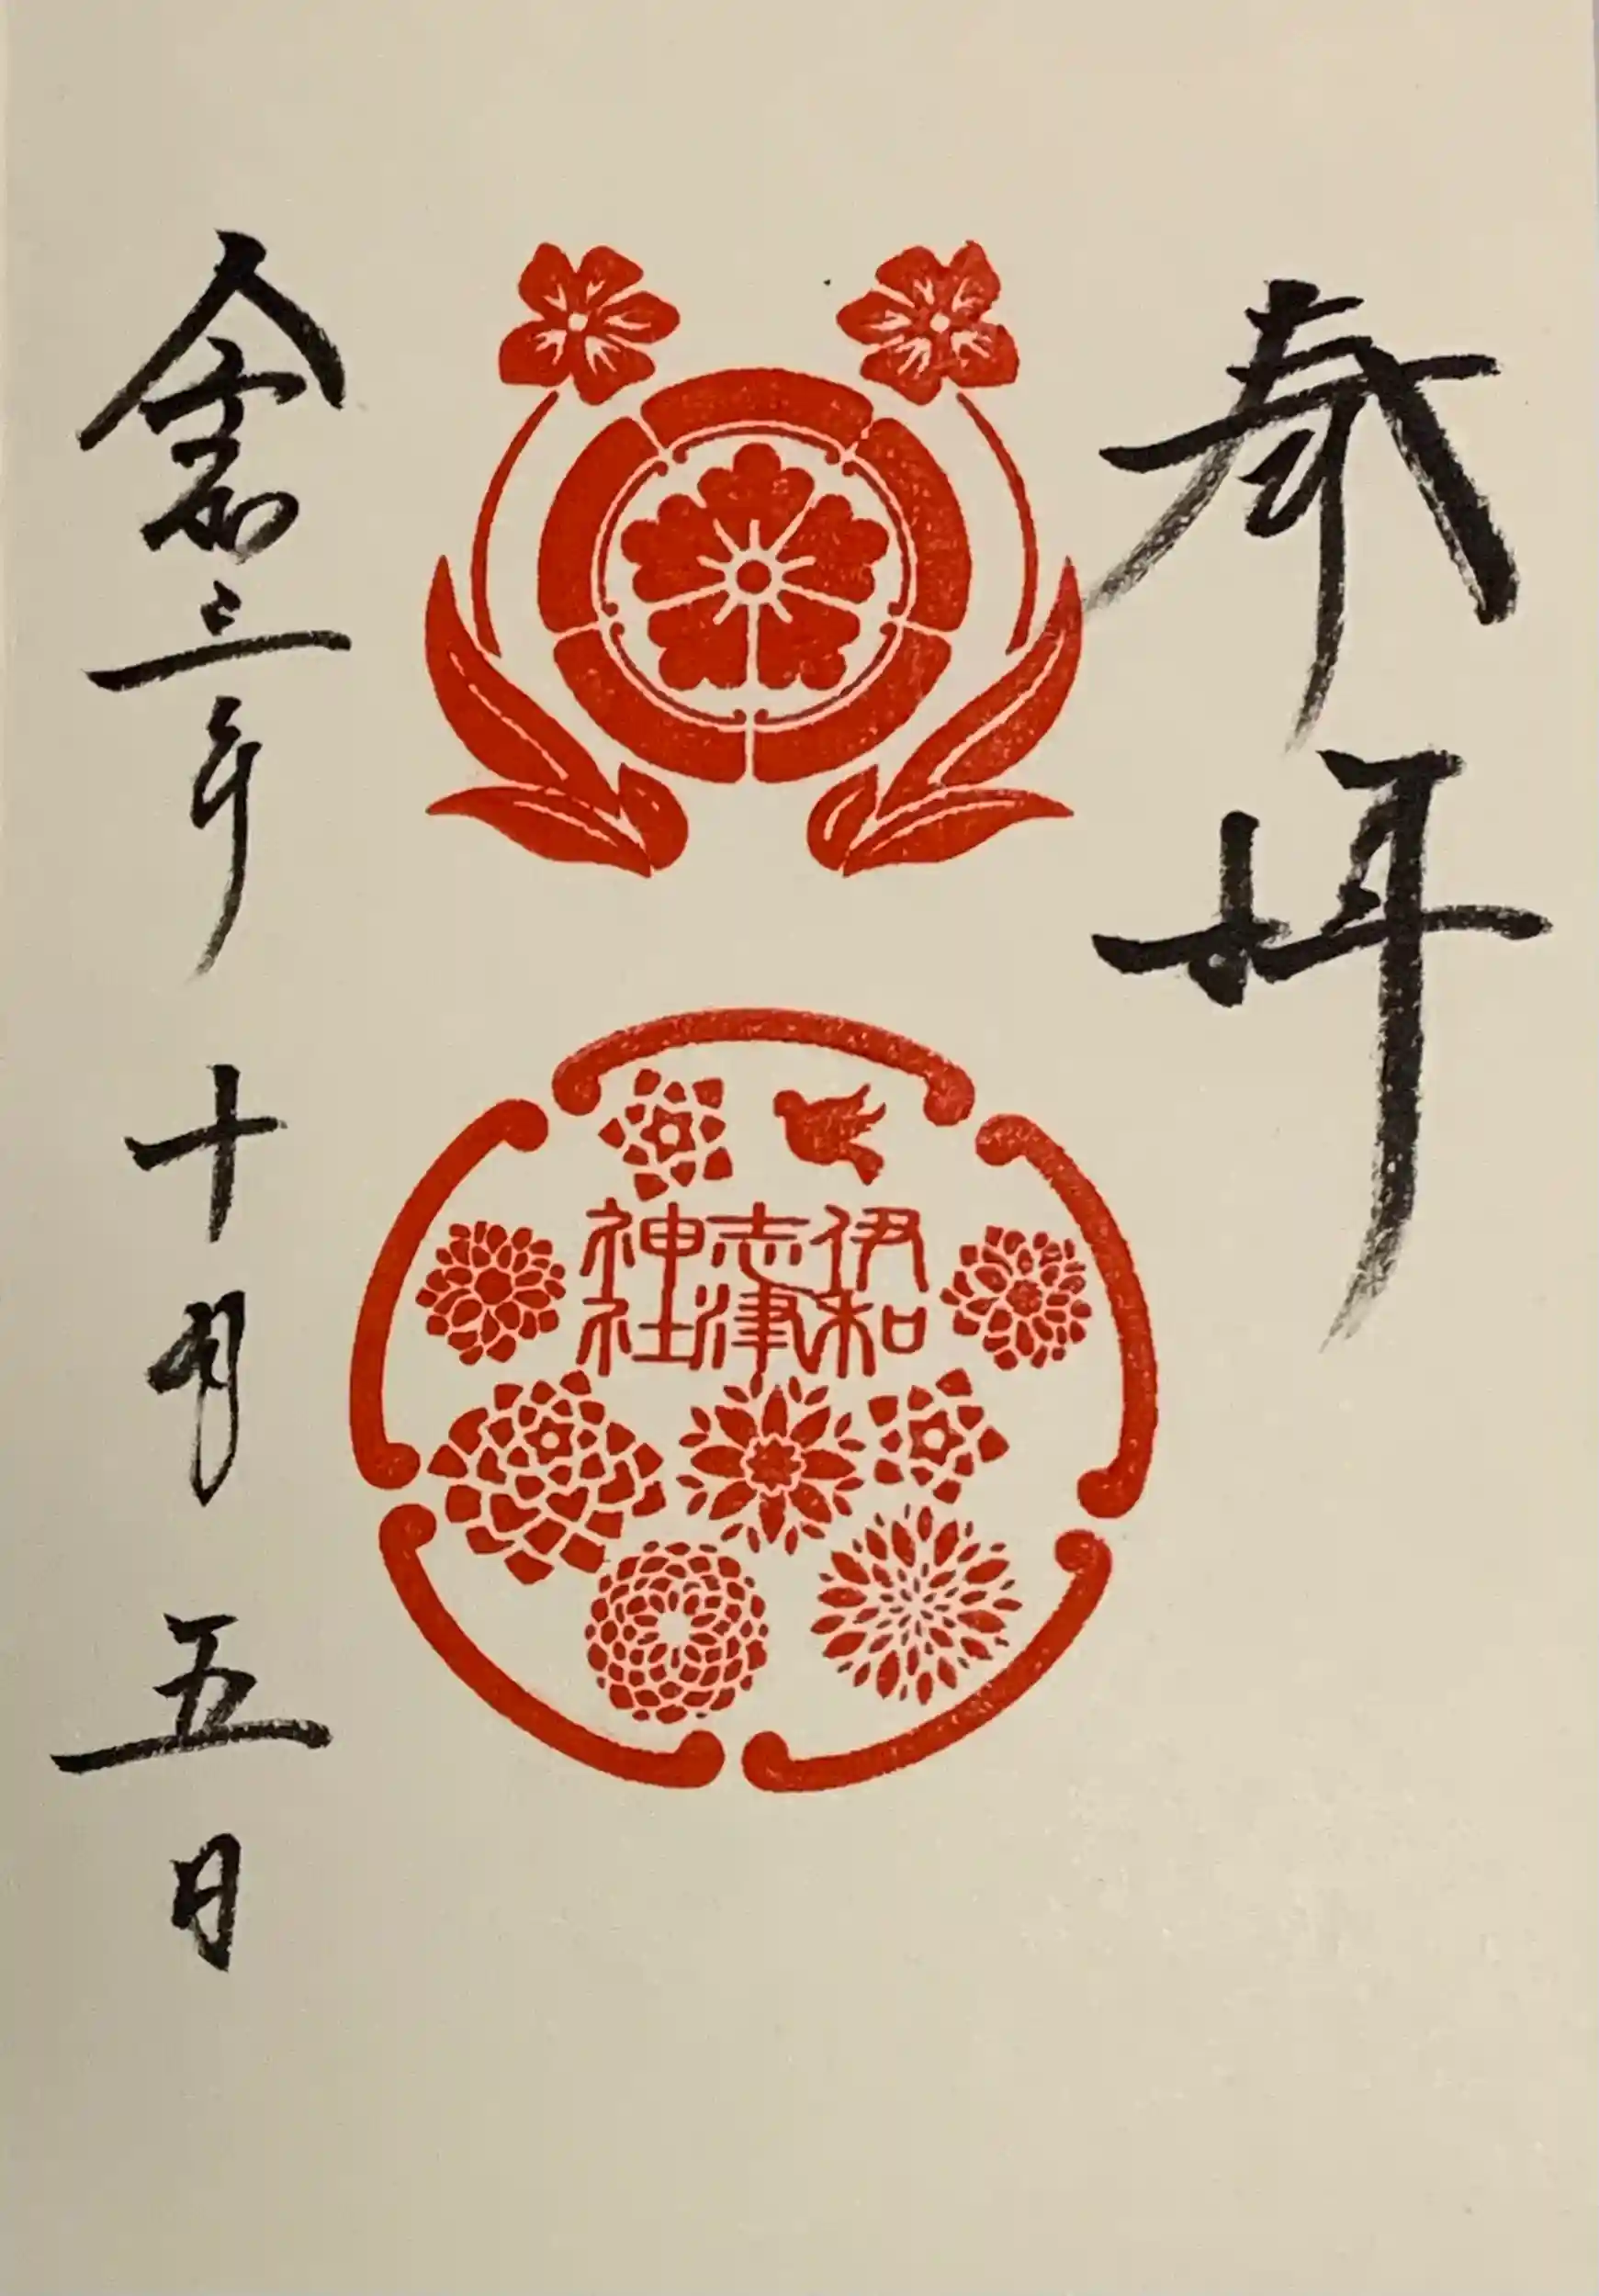 奉拝
伊和
志津
神社
令和三年十月五日